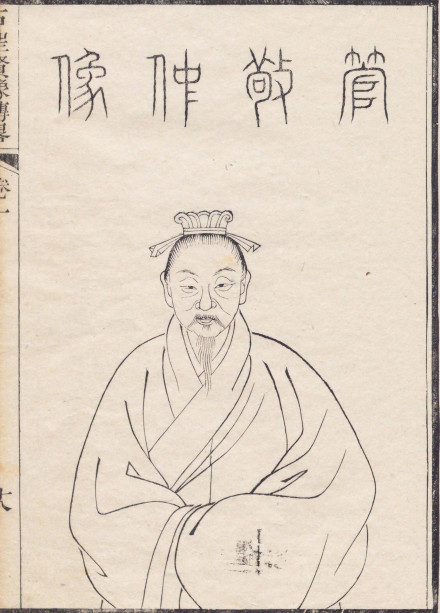 管敬仲像
古聖賢像傳畧
卷一